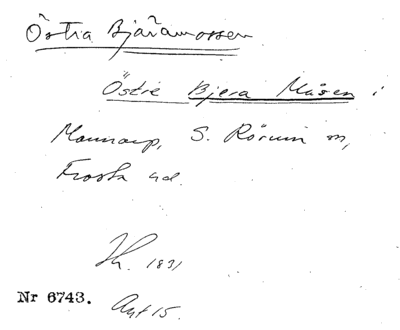 Östra Bjäramossen
Östre Bjera Måsen i
Mannarp, S. Rörum sn,
Frosta hd.
1831
Nr 6743. Akt 15.